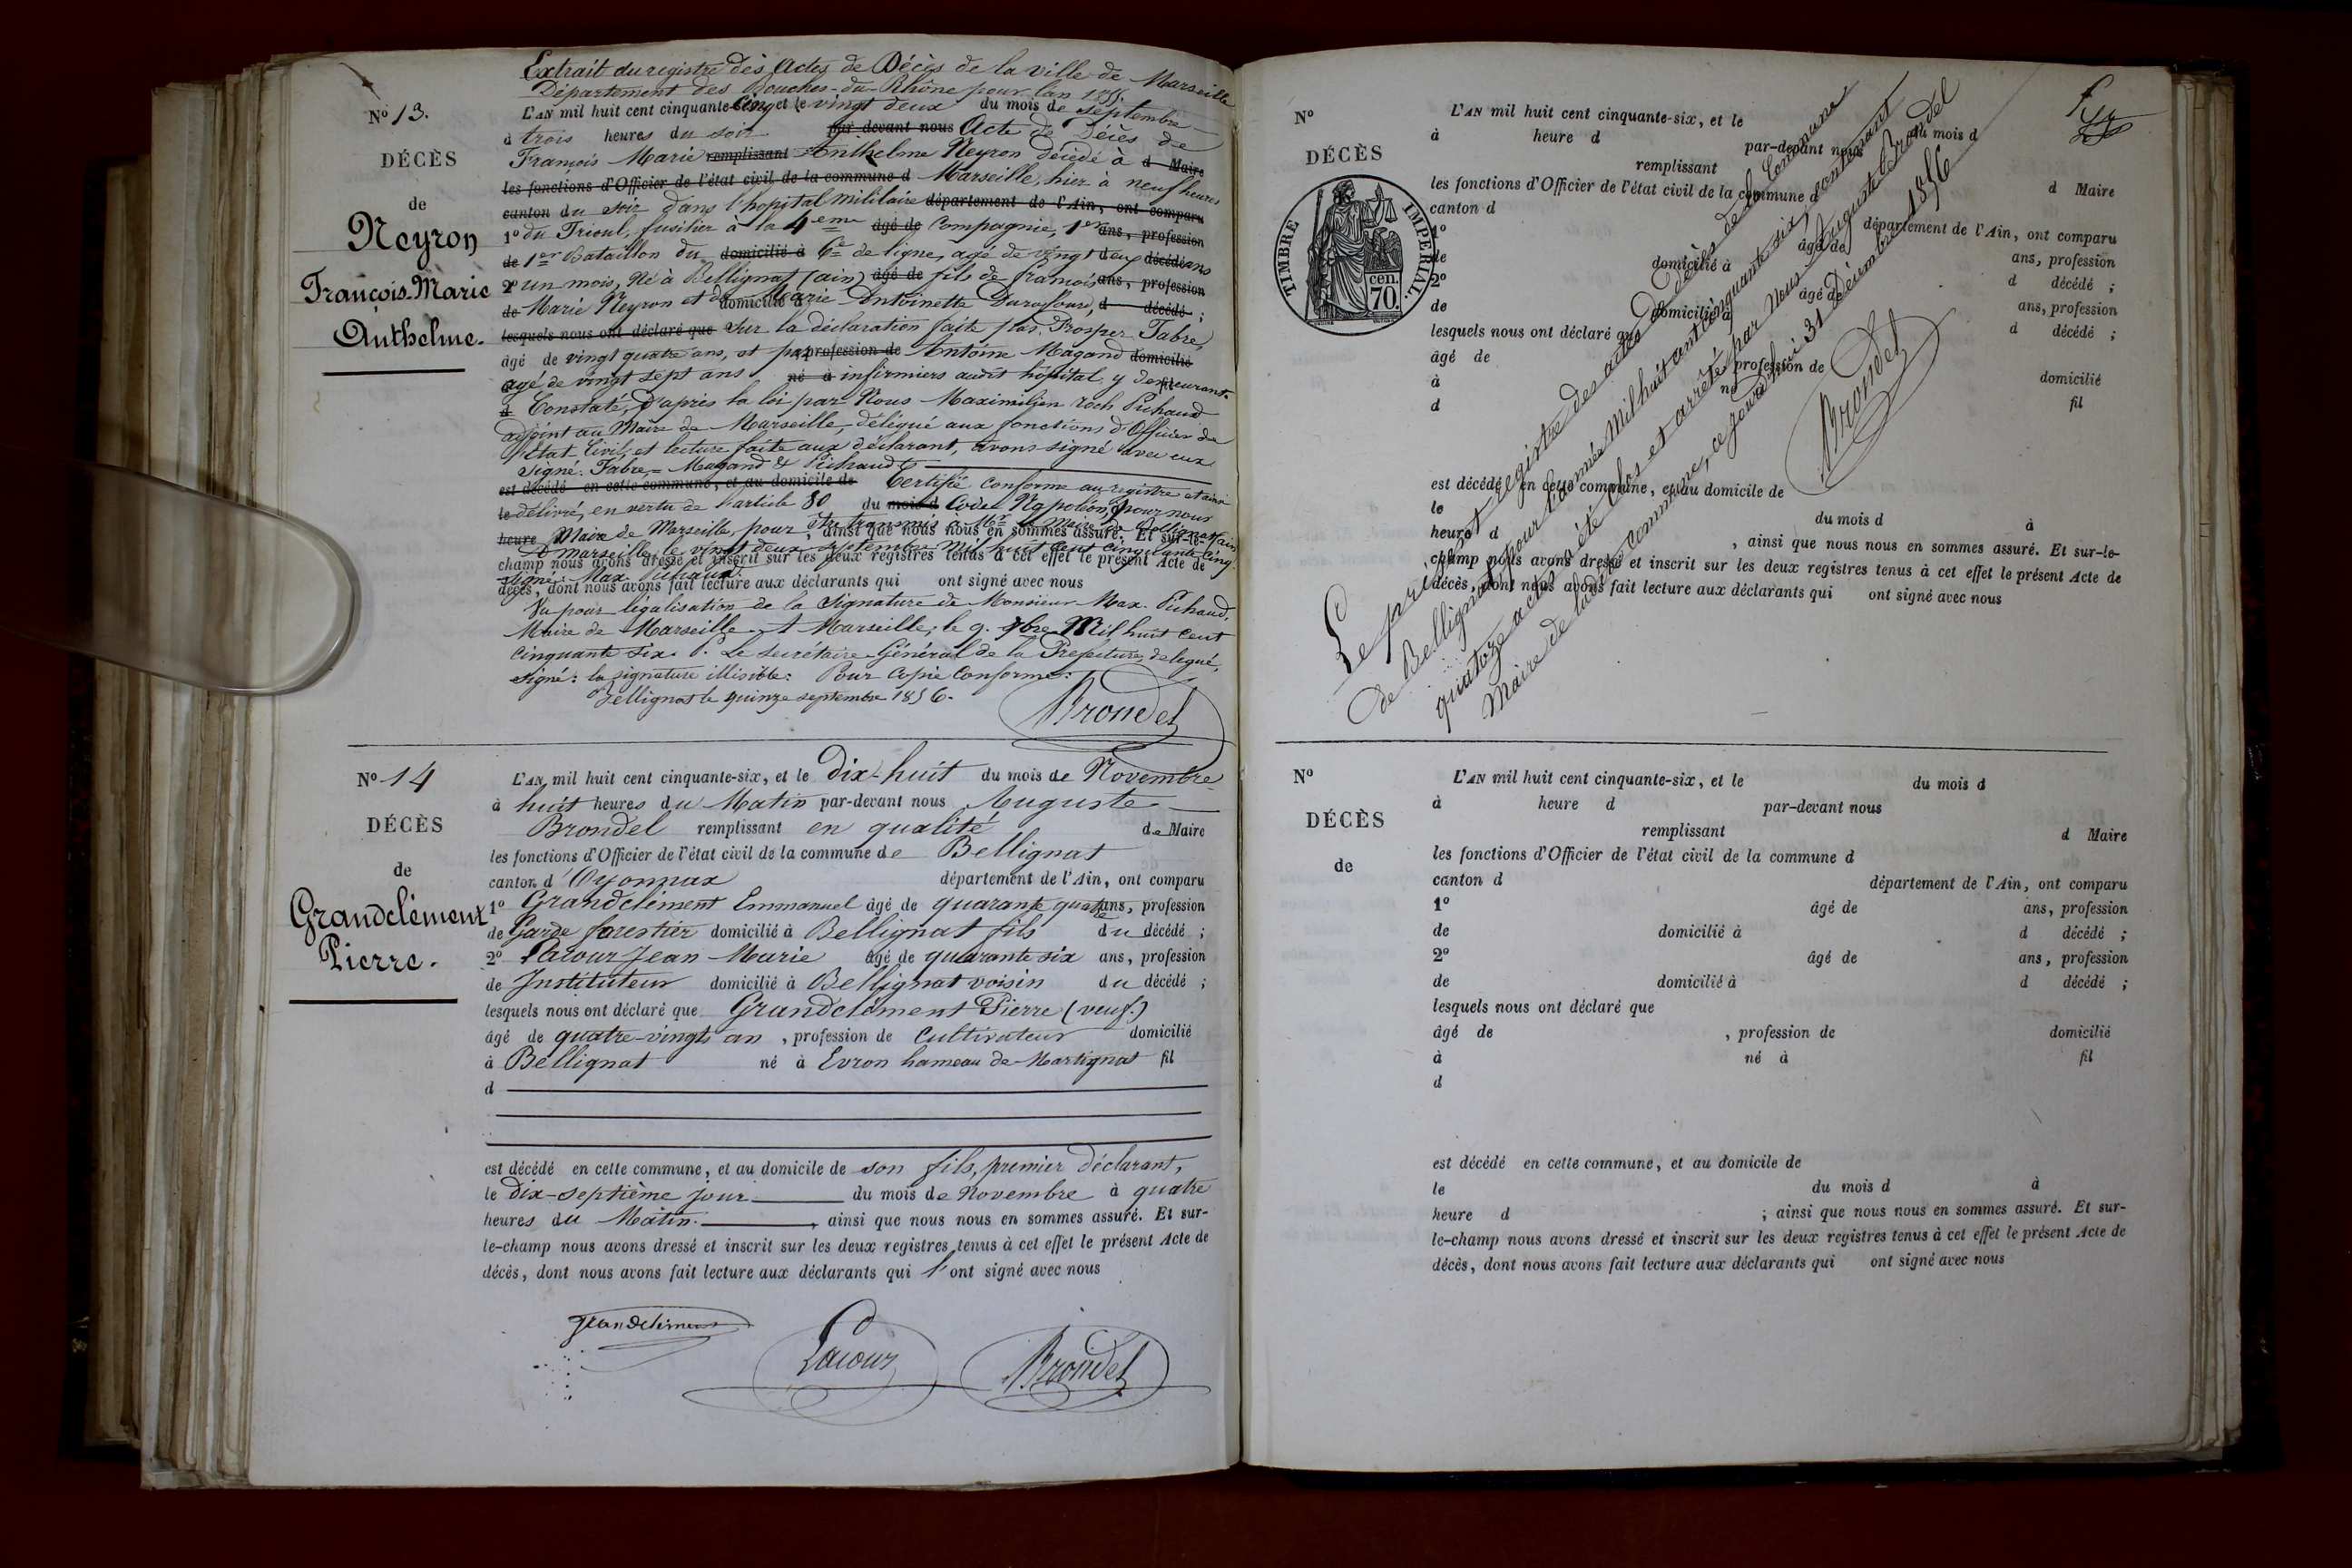 Extrait du registre des Actes de Décès de la ville de Marseille
Département des Bouches-du-Rhône pour l'an 1855.
N° 13.
L'AN mil huit cent cinquante-cinq et le vingt deux du mois de septembre
à trois heures du soir par devant nous Acte de Décès de
DÉCÈS
François Marie remplissant Anthelme Neyron décédé à d Maire
les fonctions d'Officier de l'état civil de la commune d Marseille, hier à neuf heures
de
canton du soir dans l'hopital militaire département de l'Ain, ont comparu
Neyron
1° du fusilier à la 4eme âgé de Compagnie, 1er ans, profession
de 1er Bataillon du domicilié à 6e de ligne, agé de vingt deux décédé ans
François-Marie
2° un mois, Né à Bellignat (ain) âgé de fils de françois ans, profession
de Marie Neyron et de domicilié à Marie Antoinette d décédé ;
Anthelme.
lesquels nous ont déclaré que Sur la déclaration faite par Prosper Fabre,
âgé de vingt quatre ans, et par profession de Antoine Magand domicilié
agé de vingt sept ans né à infirmiers audit hôpital y demeurant.
d Constaté, d'après la loi par Nous Maximilien roch Pichaud
adjoint au Maire de Marseille, délégué aux fonctions d'Officier de
l'Etat Civil, et lecture faite aux déclarant, avons signé avec eux
Signé: Fabre = Magand & Pichaud
est décédé en cette commune, et au domicile de Certifié conforme au registre et ainsi
le délivré, en vertu de l'article 80 du mois d Code Napoléon, pour nous
heure Maire de Marseille, pour être transmis à Mr le Maire de Bellignat Ain
, ainsi que nous nous en sommes assuré. Et sur-le-
A Marseille le vingt deux septembre Mil huit cent cinquante cinq.
champ nous avons dressé et inscrit sur les deux registres tenus à cet effet le présent Acte de
signé: Max Pichaud
décès, dont nous avons fait lecture aux déclarants qui ont signé avec nous
Vu pour légalisation de la signature de Monsieur Max. Pichaud,
Maire de Marseille. A Marseille, le 9. 7bre Mil huit Cent
Cinquante Six. P. Le Secrétaire Général de la Préfecture, délégué,
signé: la signature illisible: Pour Copie Conforme:
Bellignat le quinze septembre 1856.
Brondel
N° 14
L'AN mil huit cent cinquante-six, et le dix-huit du mois de Novembre
à huit heures du Matin par-devant nous Auguste
DÉCÈS
Brondel remplissant en qualité de Maire
les fonctions d'Officier de l'état civil de la commune de Bellignat
de
canton d'Oyonnax département de l'Ain, ont comparu
Grandclément
1° Grandclément Emmanuel âgé de quarante quatre ans, profession
de Garde forestier domicilié à Bellignat fils du décédé ;
Pierre.
2° Lacour Jean-Marie âgé de quarante six ans, profession
de Instituteur domicilié à Bellignat voisin du décédé ;
lesquels nous ont déclaré que Grandclément Pierre (veuf.)
âgé de quatre-vingts an , profession de Cultivateur domicilié
à Bellignat né à Evron hameau de Martignat fil
d
est décédé en cette commune, et au domicile de son fils, premier déclarant,
le dix-septième jour du mois de Novembre à quatre
heures du Matin. , ainsi que nous nous en sommes assuré. Et sur-
le-champ nous avons dressé et inscrit sur les deux registres tenus à cet effet le présent Acte de
décès, dont nous avons fait lecture aux déclarants qui l'ont signé avec nous
Grandclément
Lacour
Brondel
N°
L'AN mil huit cent cinquante-six, et le du mois d
à heure d par-devant nous
DÉCÈS
remplissant d Maire
les fonctions d'Officier de l'état civil de la commune d
canton d département de l'Ain, ont comparu
TIMBRE IMPERIAL.
70 cen.
1° âgé de ans, profession
de domicilié à d décédé ;
2° âgé de ans, profession
de domicilié à d décédé ;
lesquels nous ont déclaré que
âgé de profession de domicilié
à né fil
d
est décédé en cette commune, et au domicile de
le du mois d à
heure d , ainsi que nous nous en sommes assuré. Et sur-le-
champ nous avons dressé et inscrit sur les deux registres tenus à cet effet le présent Acte de
décès, dont nous avons fait lecture aux déclarants qui ont signé avec nous
Le présent registre des actes de décès de la Commune
de Bellignat pour l'année Mil huit cent cinquante six, contenant
quatorze actes a été clos et arrêté par Nous Auguste Brondel
Maire de ladite Commune, ce jourd'hui 31 Décembre 1856
Brondel
N°
L'AN mil huit cent cinquante-six, et le du mois d
à heure d par-devant nous
DÉCÈS
remplissant d Maire
les fonctions d'Officier de l'état civil de la commune d
de
canton d département de l'Ain, ont comparu
1° âgé de ans, profession
de domicilié à d décédé ;
2° âgé de ans, profession
de domicilié à d décédé ;
lesquels nous ont déclaré que
âgé de , profession de domicilié
à né à fil
d
est décédé en cette commune, et au domicile de
le du mois d à
heure d ; ainsi que nous nous en sommes assuré. Et sur-
le-champ nous avons dressé et inscrit sur les deux registres tenus à cet effet le présent Acte de
décès, dont nous avons fait lecture aux déclarants qui ont signé avec nous